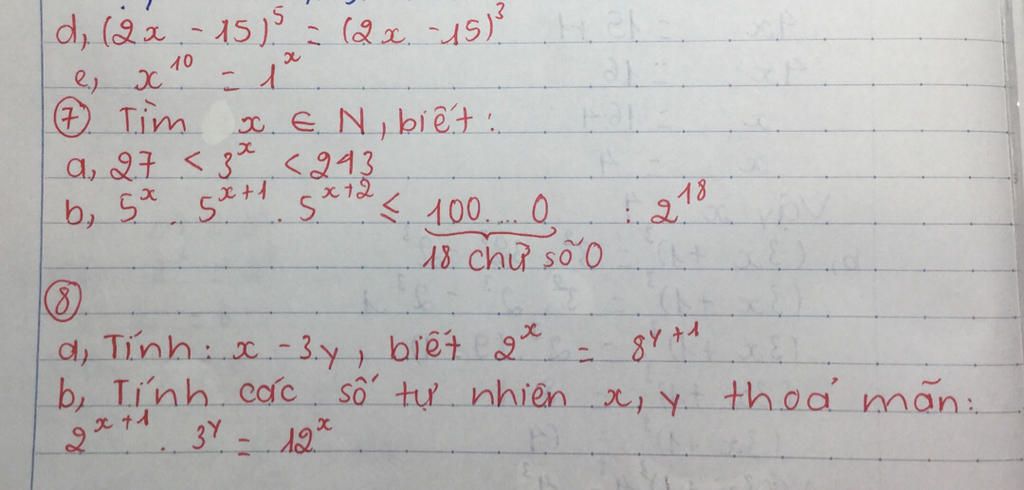 d, (2x - 15)⁵ = (2x - 15)³
e, x¹⁰ = 1ˣ
⑦ Tìm x ∈ N, biết:
a, 27 < 3ˣ < 243
b, 5ˣ . 5ˣ⁺¹ . 5ˣ⁺² ≤ 100....0 : 2¹⁸
18 chữ số 0
⑧
a, Tính: x - 3y, biết 2ˣ = 8ʸ⁺¹
b, Tính các số tự nhiên x, y thoả mãn:
2ˣ⁺¹ . 3ʸ = 12ˣ